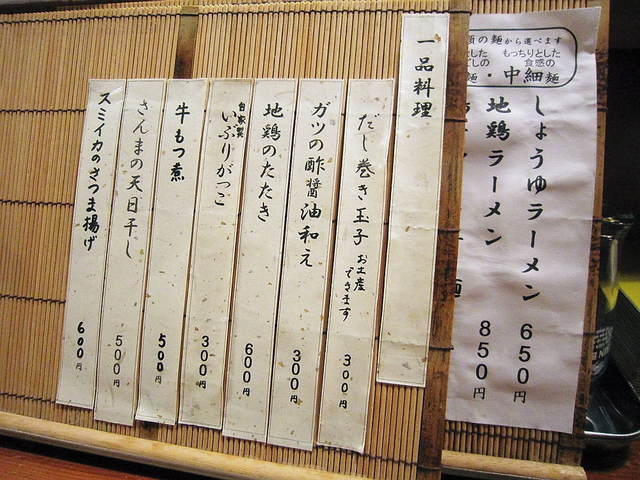 の麺から選べます
もっちりとした
食感の
・中細麺
しょうゆラーメン 650円
地鶏ラーメン 850円
一品料理
だし巻き玉子 お土産できます 300円
ガツの酢醤油和え 300円
地鶏のたたき 600円
自家製 いぶりがっこ 300円
牛もつ煮 500円
さんまの天日干し 500円
スミイカのさつま揚げ 600円